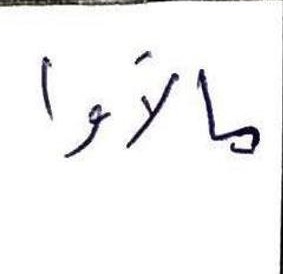 مالَاوا